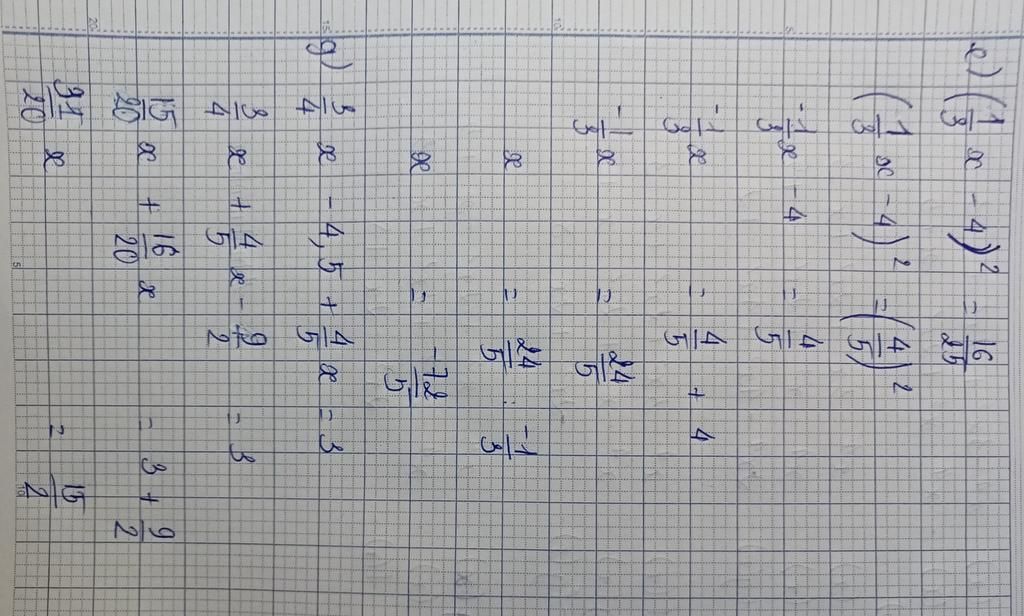 e) (1/3 x - 4)² = 16/25
(1/3 x - 4)² = (4/5)²
-1/3 x - 4 = 4/5
-1/3 x = 4/5 + 4
-1/3 x = 24/5
x = 24/5 : -1/3
x = -72/5
g) 3/4 x - 4,5 + 4/5 x = 3
3/4 x + 4/5 x - 9/2 = 3
15/20 x + 16/20 x = 3 + 9/2
31/20 x = 15/2